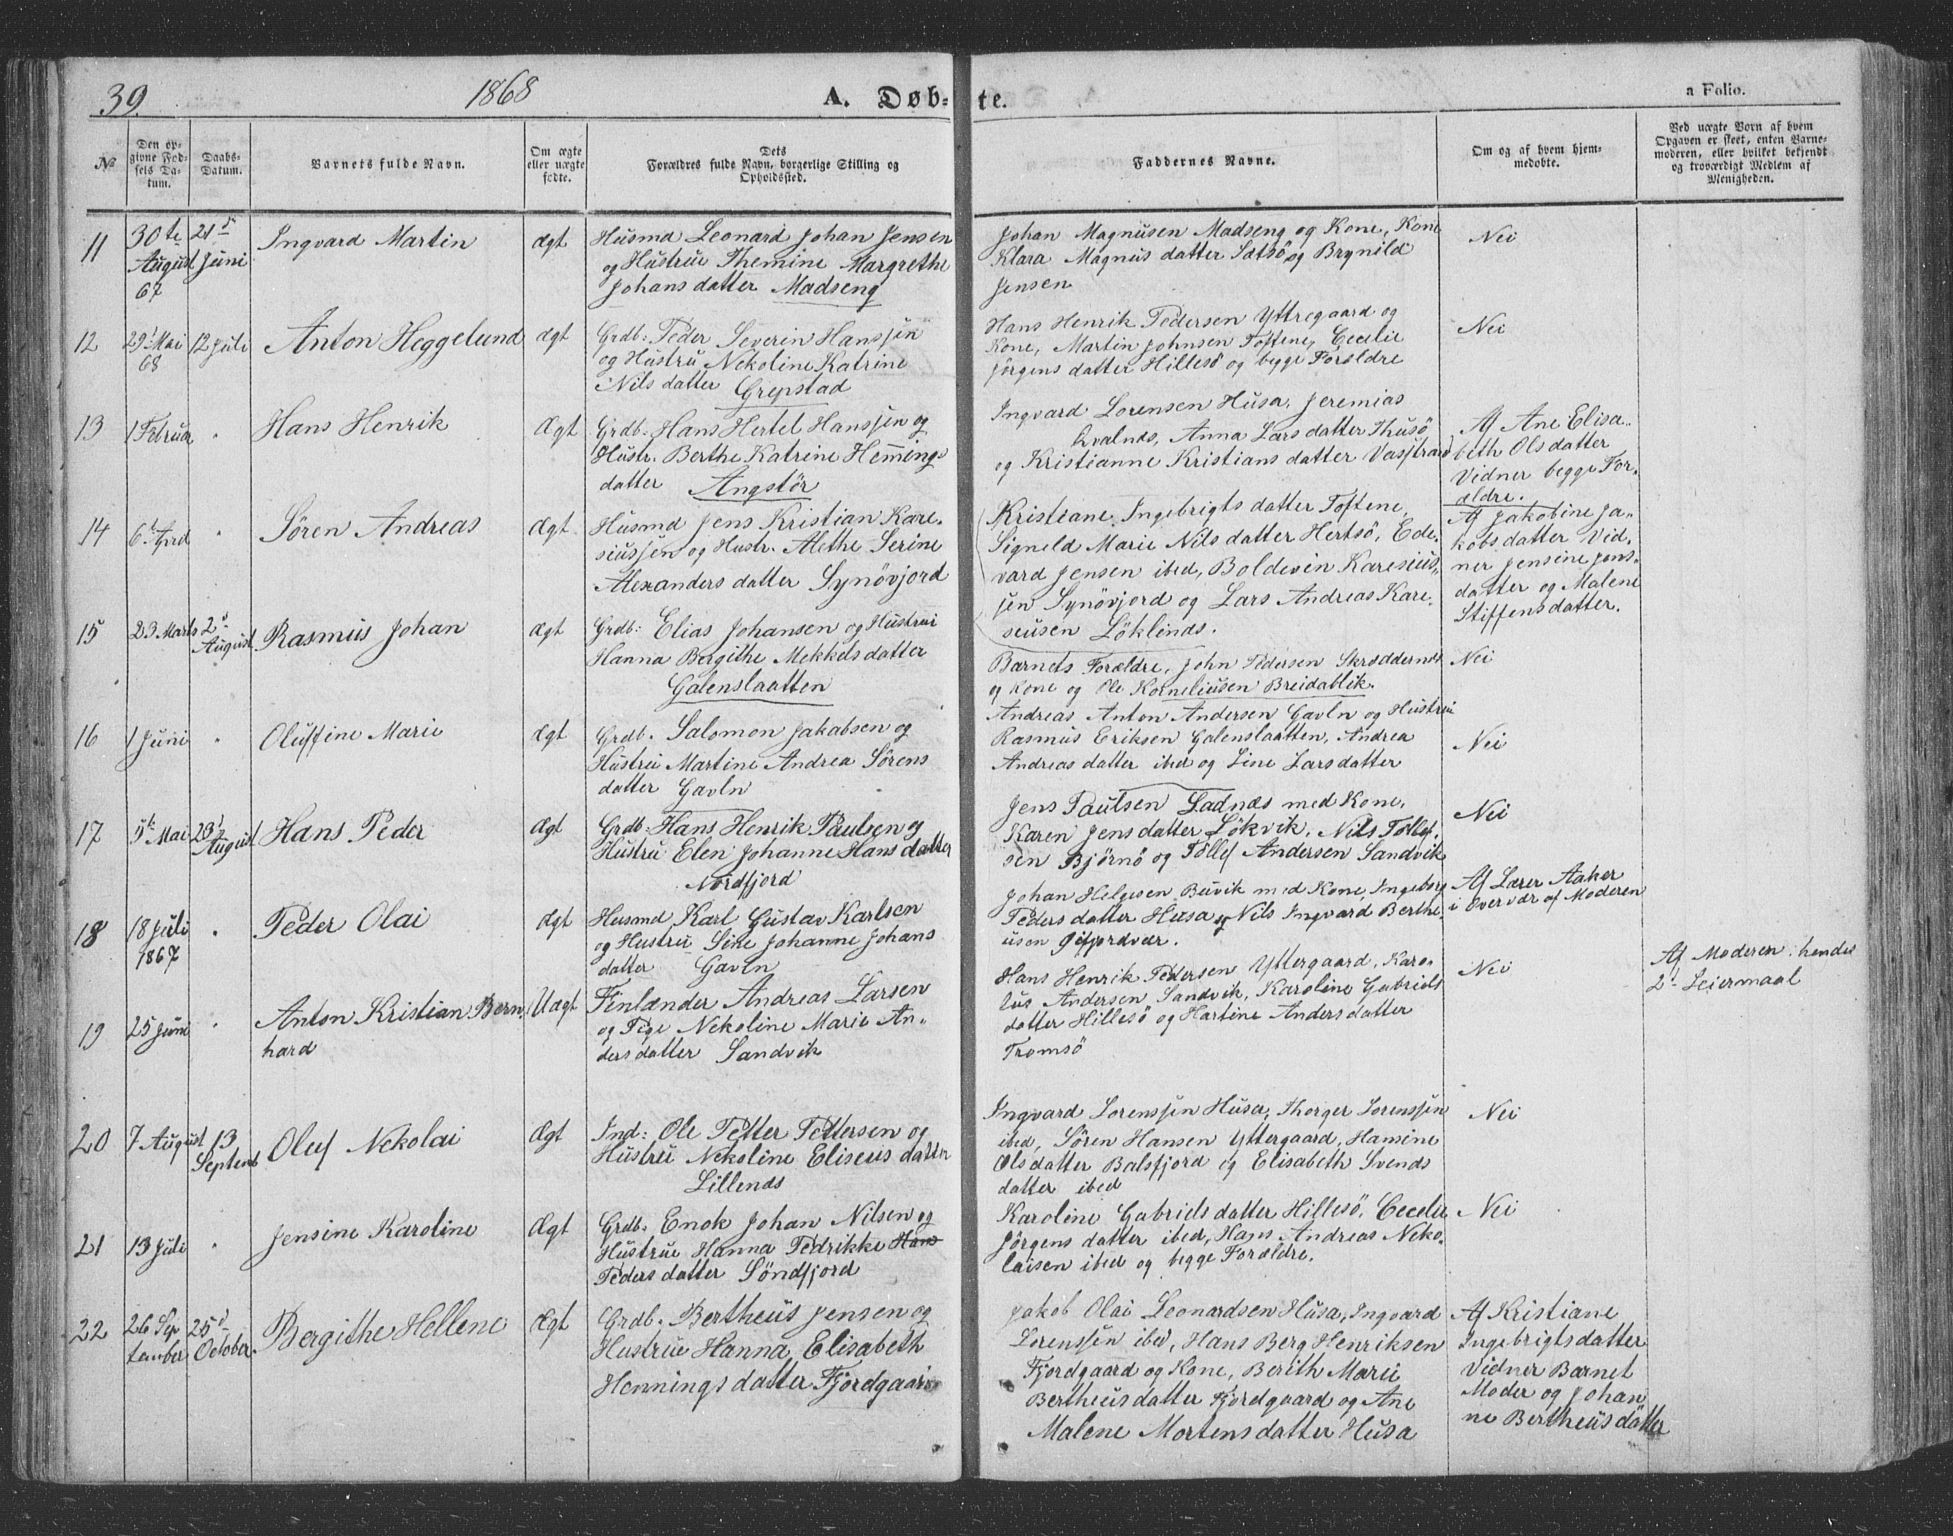 39.
1868
A. Døb-
te.
a Folio.
№
Den op-
givne Fød-
sels Da-
tum.
Daabs-
Datum.
Barnets fulde Navn.
Om ægte
eller uægte
fødte.
Dets
Forældres fulde Navn, borgerlige Stilling og
Opholdssted.
Faddernes Navne.
Om og af hvem hjem-
medøbte.
Ved uægte Børn af hvem
Opgaven er skeet, enten Barne-
moderen, eller hvilket bekjendt
og troværdigt Medlem af
Menigheden.
11
30te
August
67
21s
Juni
Ingvard Martin
Ægt
Husmd Leonard Johan Jensen
og Hustrue Themine Margrethe
Johans datter Madseng
Johan Magnusen Madseng og Kone, Kone
Klara Magnus datter Sætsö, og Brynild
Jensen
Nei
12
29' Mai
68
12 Juli
Anton Heggelund
Ægt
Grdb: Peder Severin Hanssen
og Hustru Nekoline Katrine
Nils datter Grepstad
Hans Henrik Pedersen Yttregaard og
Kone, Martin Johnsen Toftene, Cecelie
Jörgens datter Hillesö og begge Forældre
Nei
13
1 Februar
"
Hans Henrik
Ægt
Grdb. Hans Hertel Hanssen og
Hustr. Berthe Katrine Hemings
datter Angstör
Ingvard Lorensen Husa, Jeremias
Qvalnds, Anna Lars datter Thusö
og Kristianne Kristians datter Vasstrand
Af Ane Elisa-
beth Ols datter
Vidner begge For-
ældre.
14
6' April
"
Sören Andreas
Ægt
Husmd Jens Kristian Kare-
siussen og Hustr. Alethe Serine
Alexanders datter Synövjord
Kristiane Ingebrigts datter Toftene,
Signeld Marie Nils datter Hertsö, Ede-
vard Jensen ibed, Boldevin Karesius-
sen Synövjord og Lars Andreas Kare-
siusen Löklinds.
Af Jakobine Ja-
kobs datter Vid-
ner Jensine Jens
datter og Malene
Stiffens datter.
15
23. Marts
2den
August
Rasmus Johan
Ægt
Grdb: Elias Johansen og Hustrui
Hanna Bergithe Mekkels datter
Galenslaatten
Barnets Forældre, John Pedersen Skræddernes
og Kone og Ole Korneliusen Breidablik.
Nei
16
1 Juni
"
Oluffine Marie
Ægt
Grdb. Salomon Jakabsen og
Hustrui Martine Andrea Sörens
datter Gavln
Andreas Anton Andersen Gavln og Hustrui
Rasmus Eriksen Galenslaatten, Andrea
Andreas datter ibed og Line Lars datter
Nei
17
5te Mai
23'
August
Hans Peder
Ægt
Grdb. Hans Henrik Paulsen og
Hustru Elen Johanne Hans datter
Nordfjord
Jens Paulsen Ladnæs med Kone,
Karen Jens datter Lökvik, Nils Tollef-
sen Björnö og Tollef Andersen Sandvik
Nei
18
18 Juli
1867
"
Peder Olai
Ægt
Husmd Karl Gustav Karlsen
og Hustru Sine Johanne Johans
datter Gavln
Johan Helgesen Buvik med Kone, Ingeborg
Peders datter Husa og Nils Ingvard Berthe
usen Gifjordvær.
Af Lærer Aaker
i Overvær af Moderen
19
25 Juni
"
Anton Kristian Bern-
hard
Uægt
Finlænder Andreas Larsen
og Pige Nekoline Marie An-
ders datter Sandvik
Hans Henrik Pedersen Yttergaard, Karo-
lus Andersen Sandvik, Karoline Gabriels
datter Hillesö og Hartine Anders datter
Tromsö
Nei
Af Moderen, hendes
2' Leiermaal
20
7 August
13
Septemb
Oluf Nekolai
Ægt
Ind: Ole Petter Pettersen og
Hustrü Nekoline Eliseus datter
Lillends
Ingvard Lorenssen Husa, Thorger Lorenssen
ibed, Sören Hansen Yttergaard, Hansine
Ols datter Balsfjord og Elisabeth Svends
datter ibed
Nei
21
13 Juli
"
Jensine Karoline
Ægt
Grdb. Enok Johan Nilsen og
Hustrue Hanna Pedrikke Han
Peders datter Söndfjord
Karoline Gabriels datter Hillesö, Cecelie
Jörgens datter ibed, Hans Andreas Neko-
laisen ibed og begge Forældre.
Nei
22
26 Sep
tember
25d
October
Bergithe Hellene
Ægt
Grdb. Bertheus Jensen og
Hustrue Hanna Elisabeth
Hennings datter Fjordgaard
Jakob Olai Leonardsen Husa, Ingvard
Lorenssen ibed, Hans Berg Henriksen
Fjordgaard og Kone, Berith Marie
Bertheus datter Fjordgaard og Ane
Malene Mortens datter Husa
Af Kristiane
Ingebrigts datter
Vidner Barnet
Moder og Johan
ne Bertheus datter